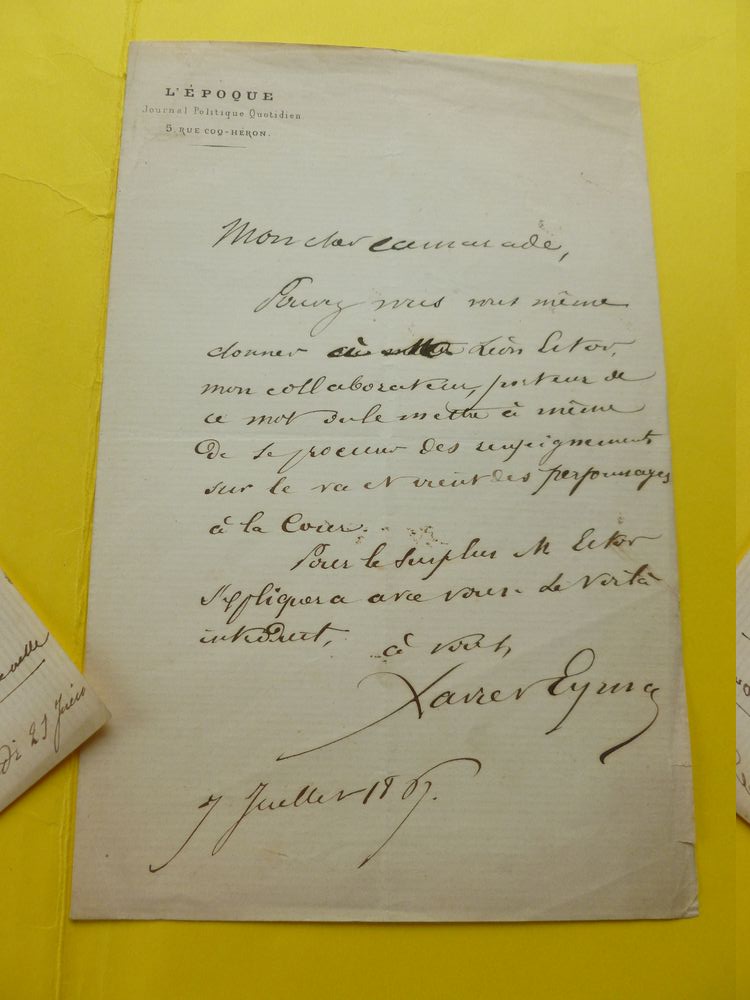 L'ÉPOQUE
Journal Politique Quotidien
5, RUE COQ-HÉRON.
Mon cher camarade,
vous vous même
donner à Léon Estor,
mon collaborateur, porteur de
ce mot ou le mettre à même
de se procurer des renseignements
sur le va et vient des personnages
à la Cour.
Pour le surplus M Estor
s'expliquera avec vous. Le voilà
introduit, à vous
Xavier Eyma
7 Juillet 1867.
di 21 Juin